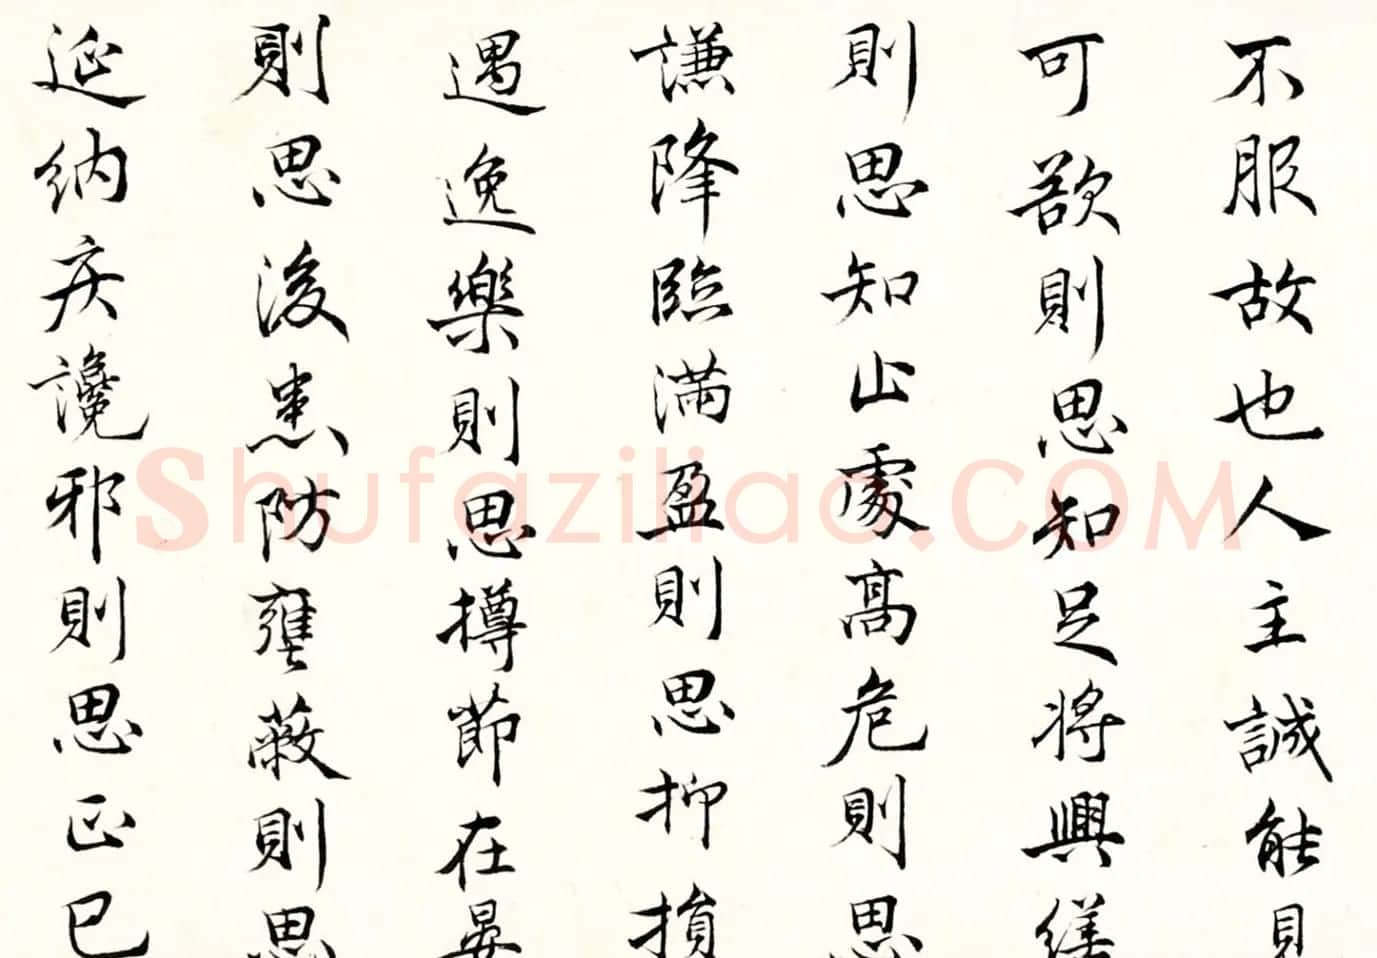 不服故也人主誠能見
可欲則思知足將興繕
則思知止處高危則思
謙降臨滿盈則思抑損
遇逸樂則思撙節在宴
則思後患防壅蔽則思
延納疾讒邪則思正己
Shufaziliao.COM